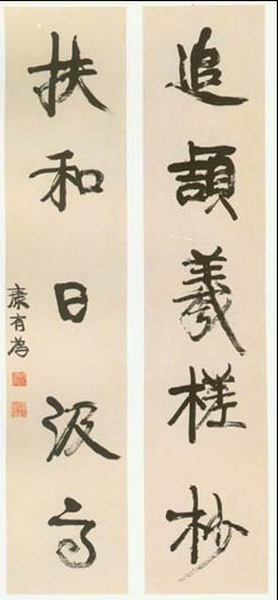 追頡羲槎杪
扶和日汲
康有為